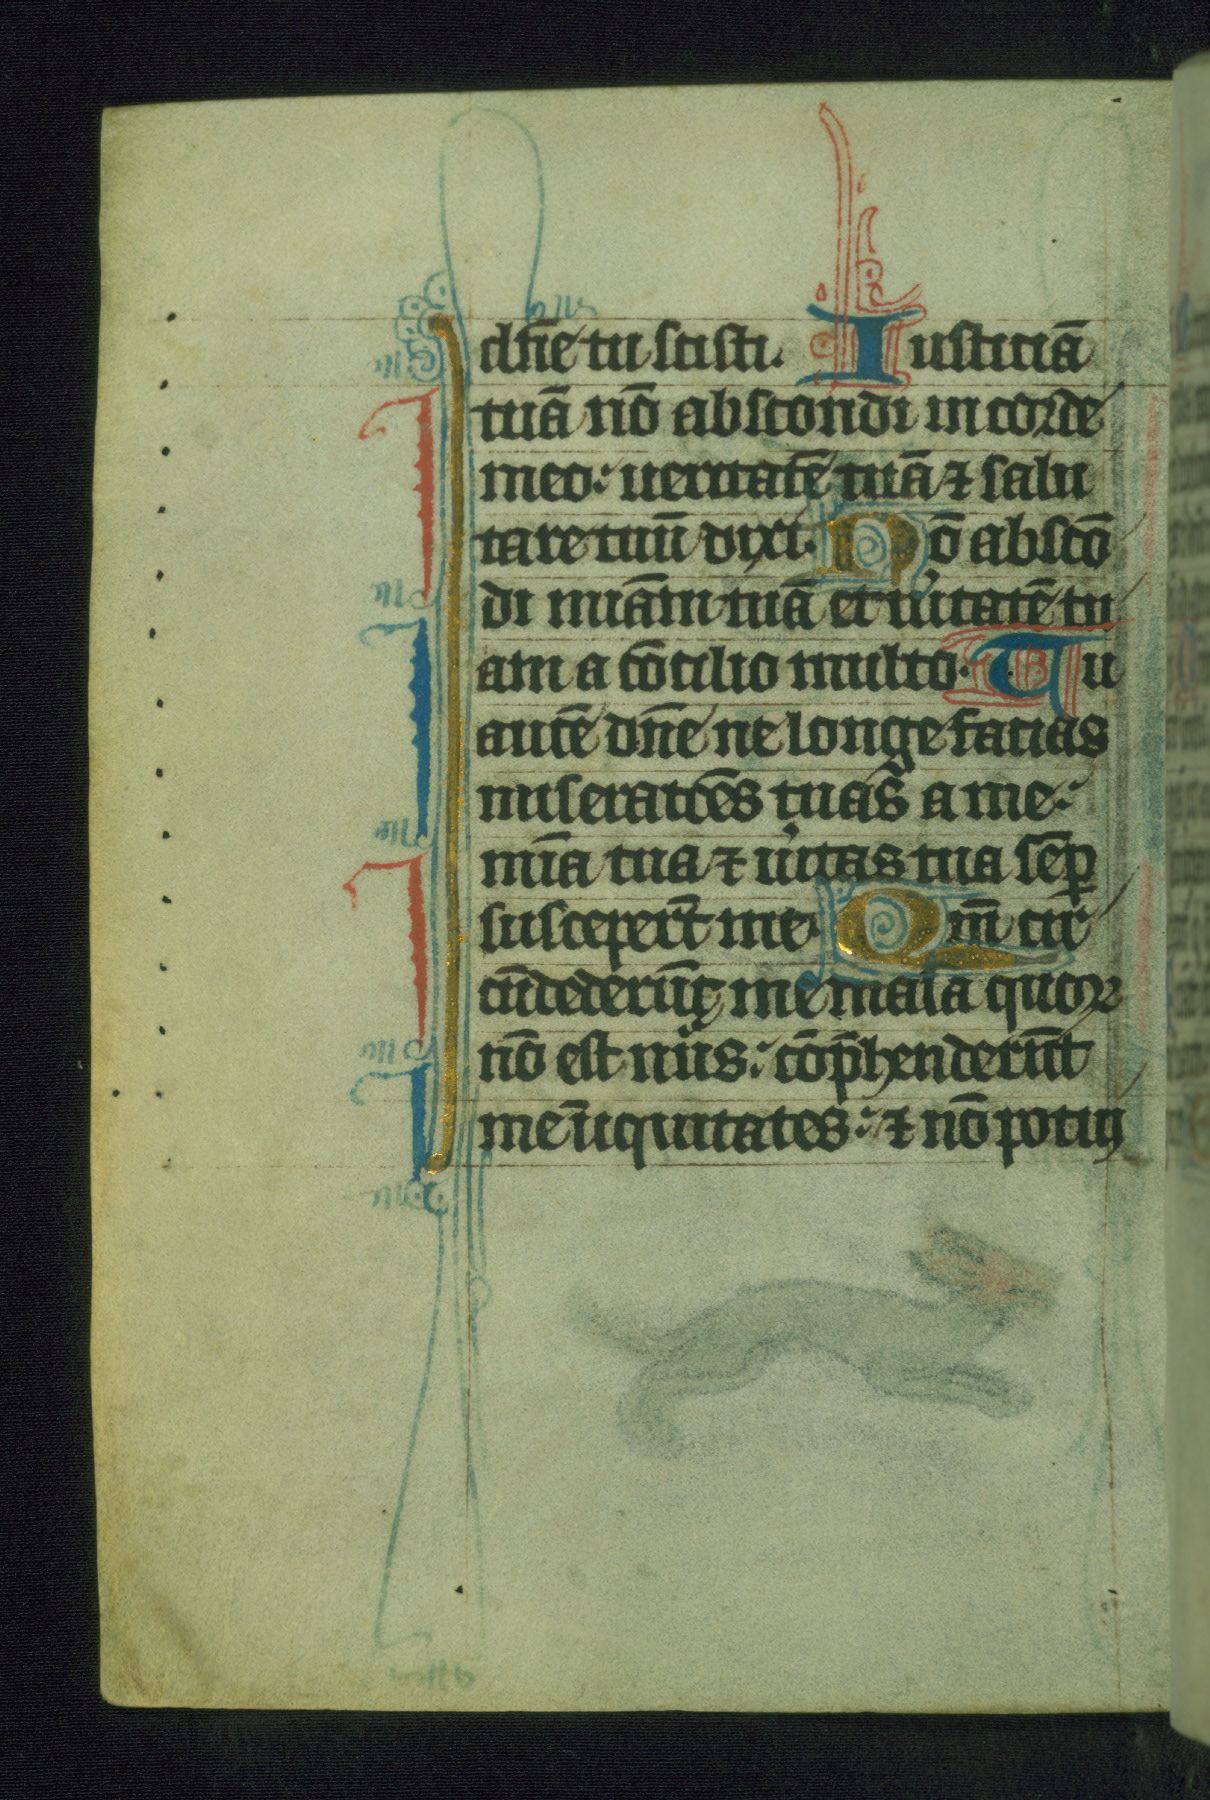 dn̄e tu scisti. Iusticiā
tuā nō abscondi in corde
meo: ueritatē tuā ⁊ salu
tare tuū dixi. Nō abscō
di miām tuā et ūitatē tu
am a cōcilio multo. Tu
autē dn̄e ne longe facias
miseratōēs tuas a me:
mīa tua ⁊ ūitas tua sēp
susceper̄t me. Qm̄ cir
cūdederūt me mala quoꝝ
nō est nūs: cōp̄henderūt
me īiquitates: ⁊ nō potuı